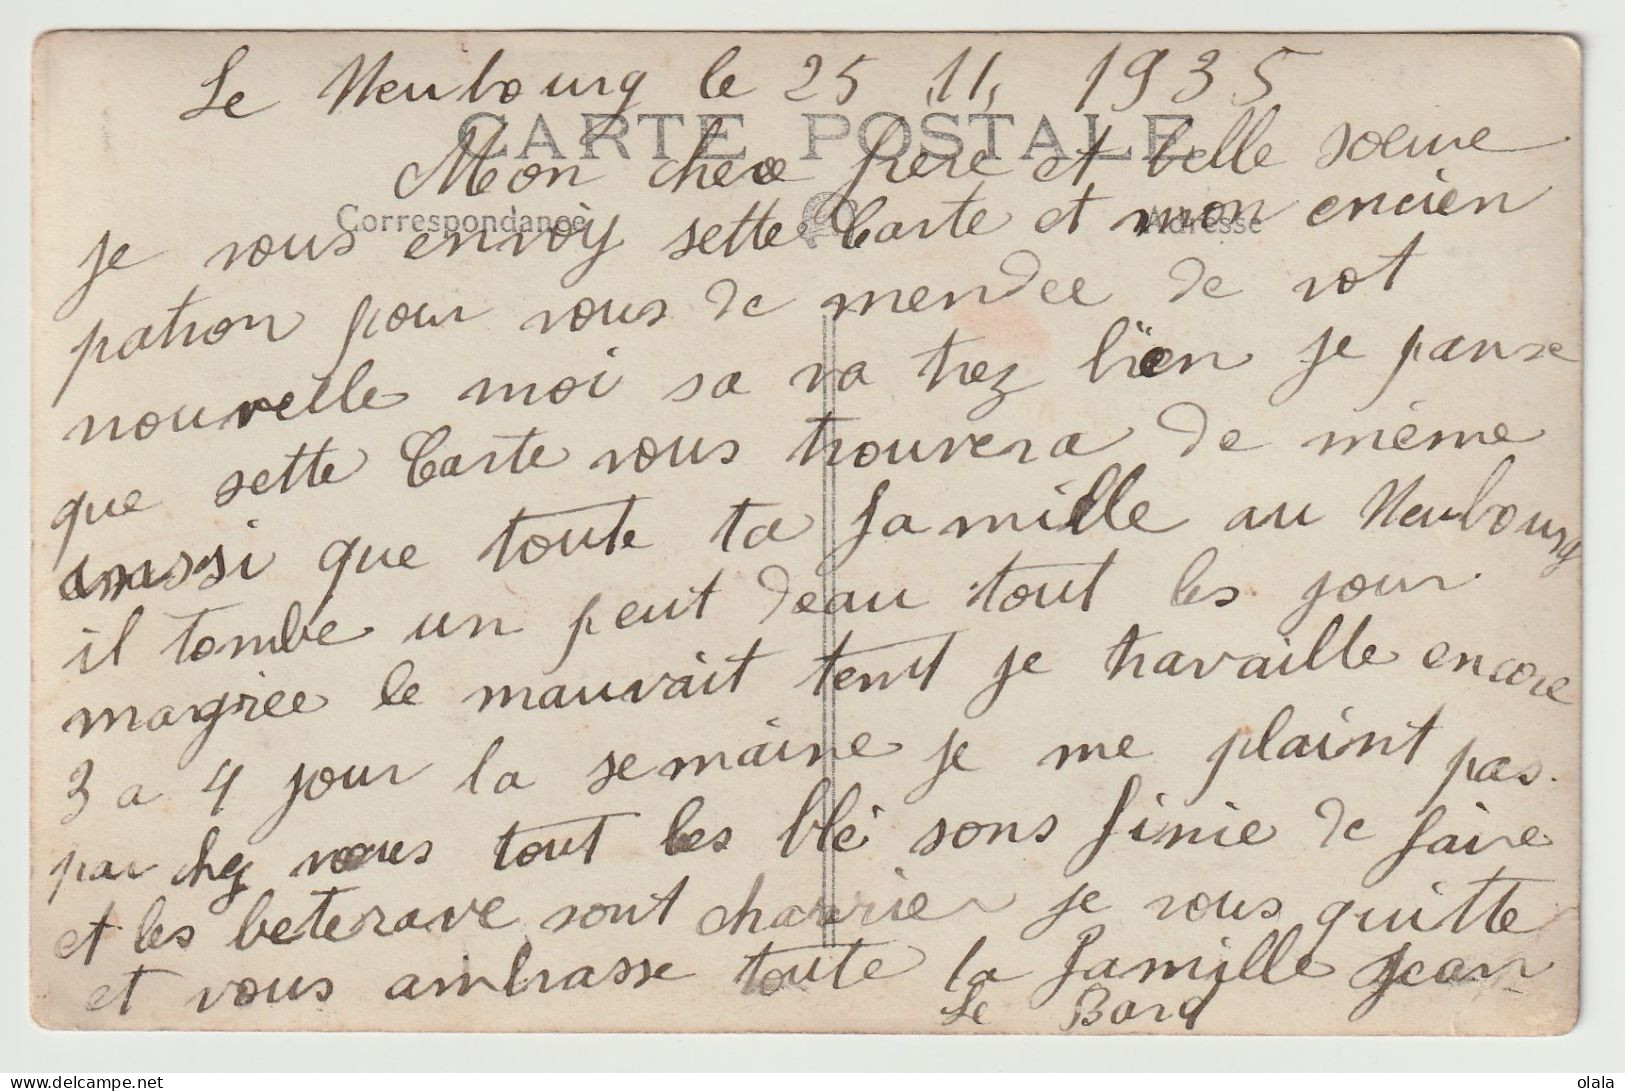 Le Neubourg le 25 11, 1935
CARTE POSTALE
Mon chere frere et belle soeure
Correspondance
Adresse
je vous envoÿ sette Carte et mon encien
patron pour vous de mendee de vot
nouvelle moi sa va trez bïen je panse
que sette Carte vous trouvera de même
aussi que toute ta famille au Neubourg
il tombe un peut deau tout les jour
magree le mauvait temt je travaille encore
3 a 4 jour la semaine je me plaint pas.
par chez vous tout les blé sons finie de faire
et les beterave sont charrier je vous quitte
et vous ambrasse toute la famille Jean
Le Bard
delcampe.net
olala